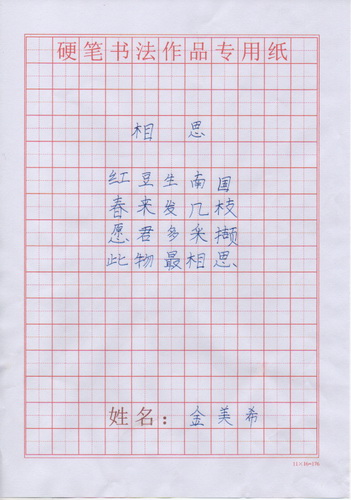 硬笔书法作品专用纸
相思
红豆生南国
春来发几枝
愿君多采撷
此物最相思
姓名：金美希